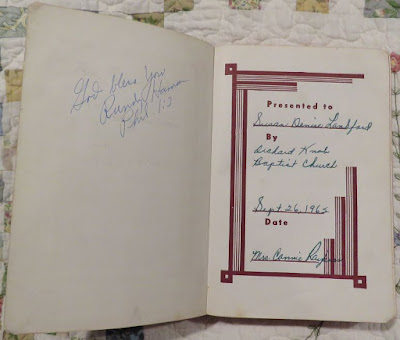 God bless you
Randy
Phil 1:3
Presented to
Susan Denise Lankford
By
Orchard Knob
Baptist Church
Sept 26, 1965
Date
Mrs. Connie